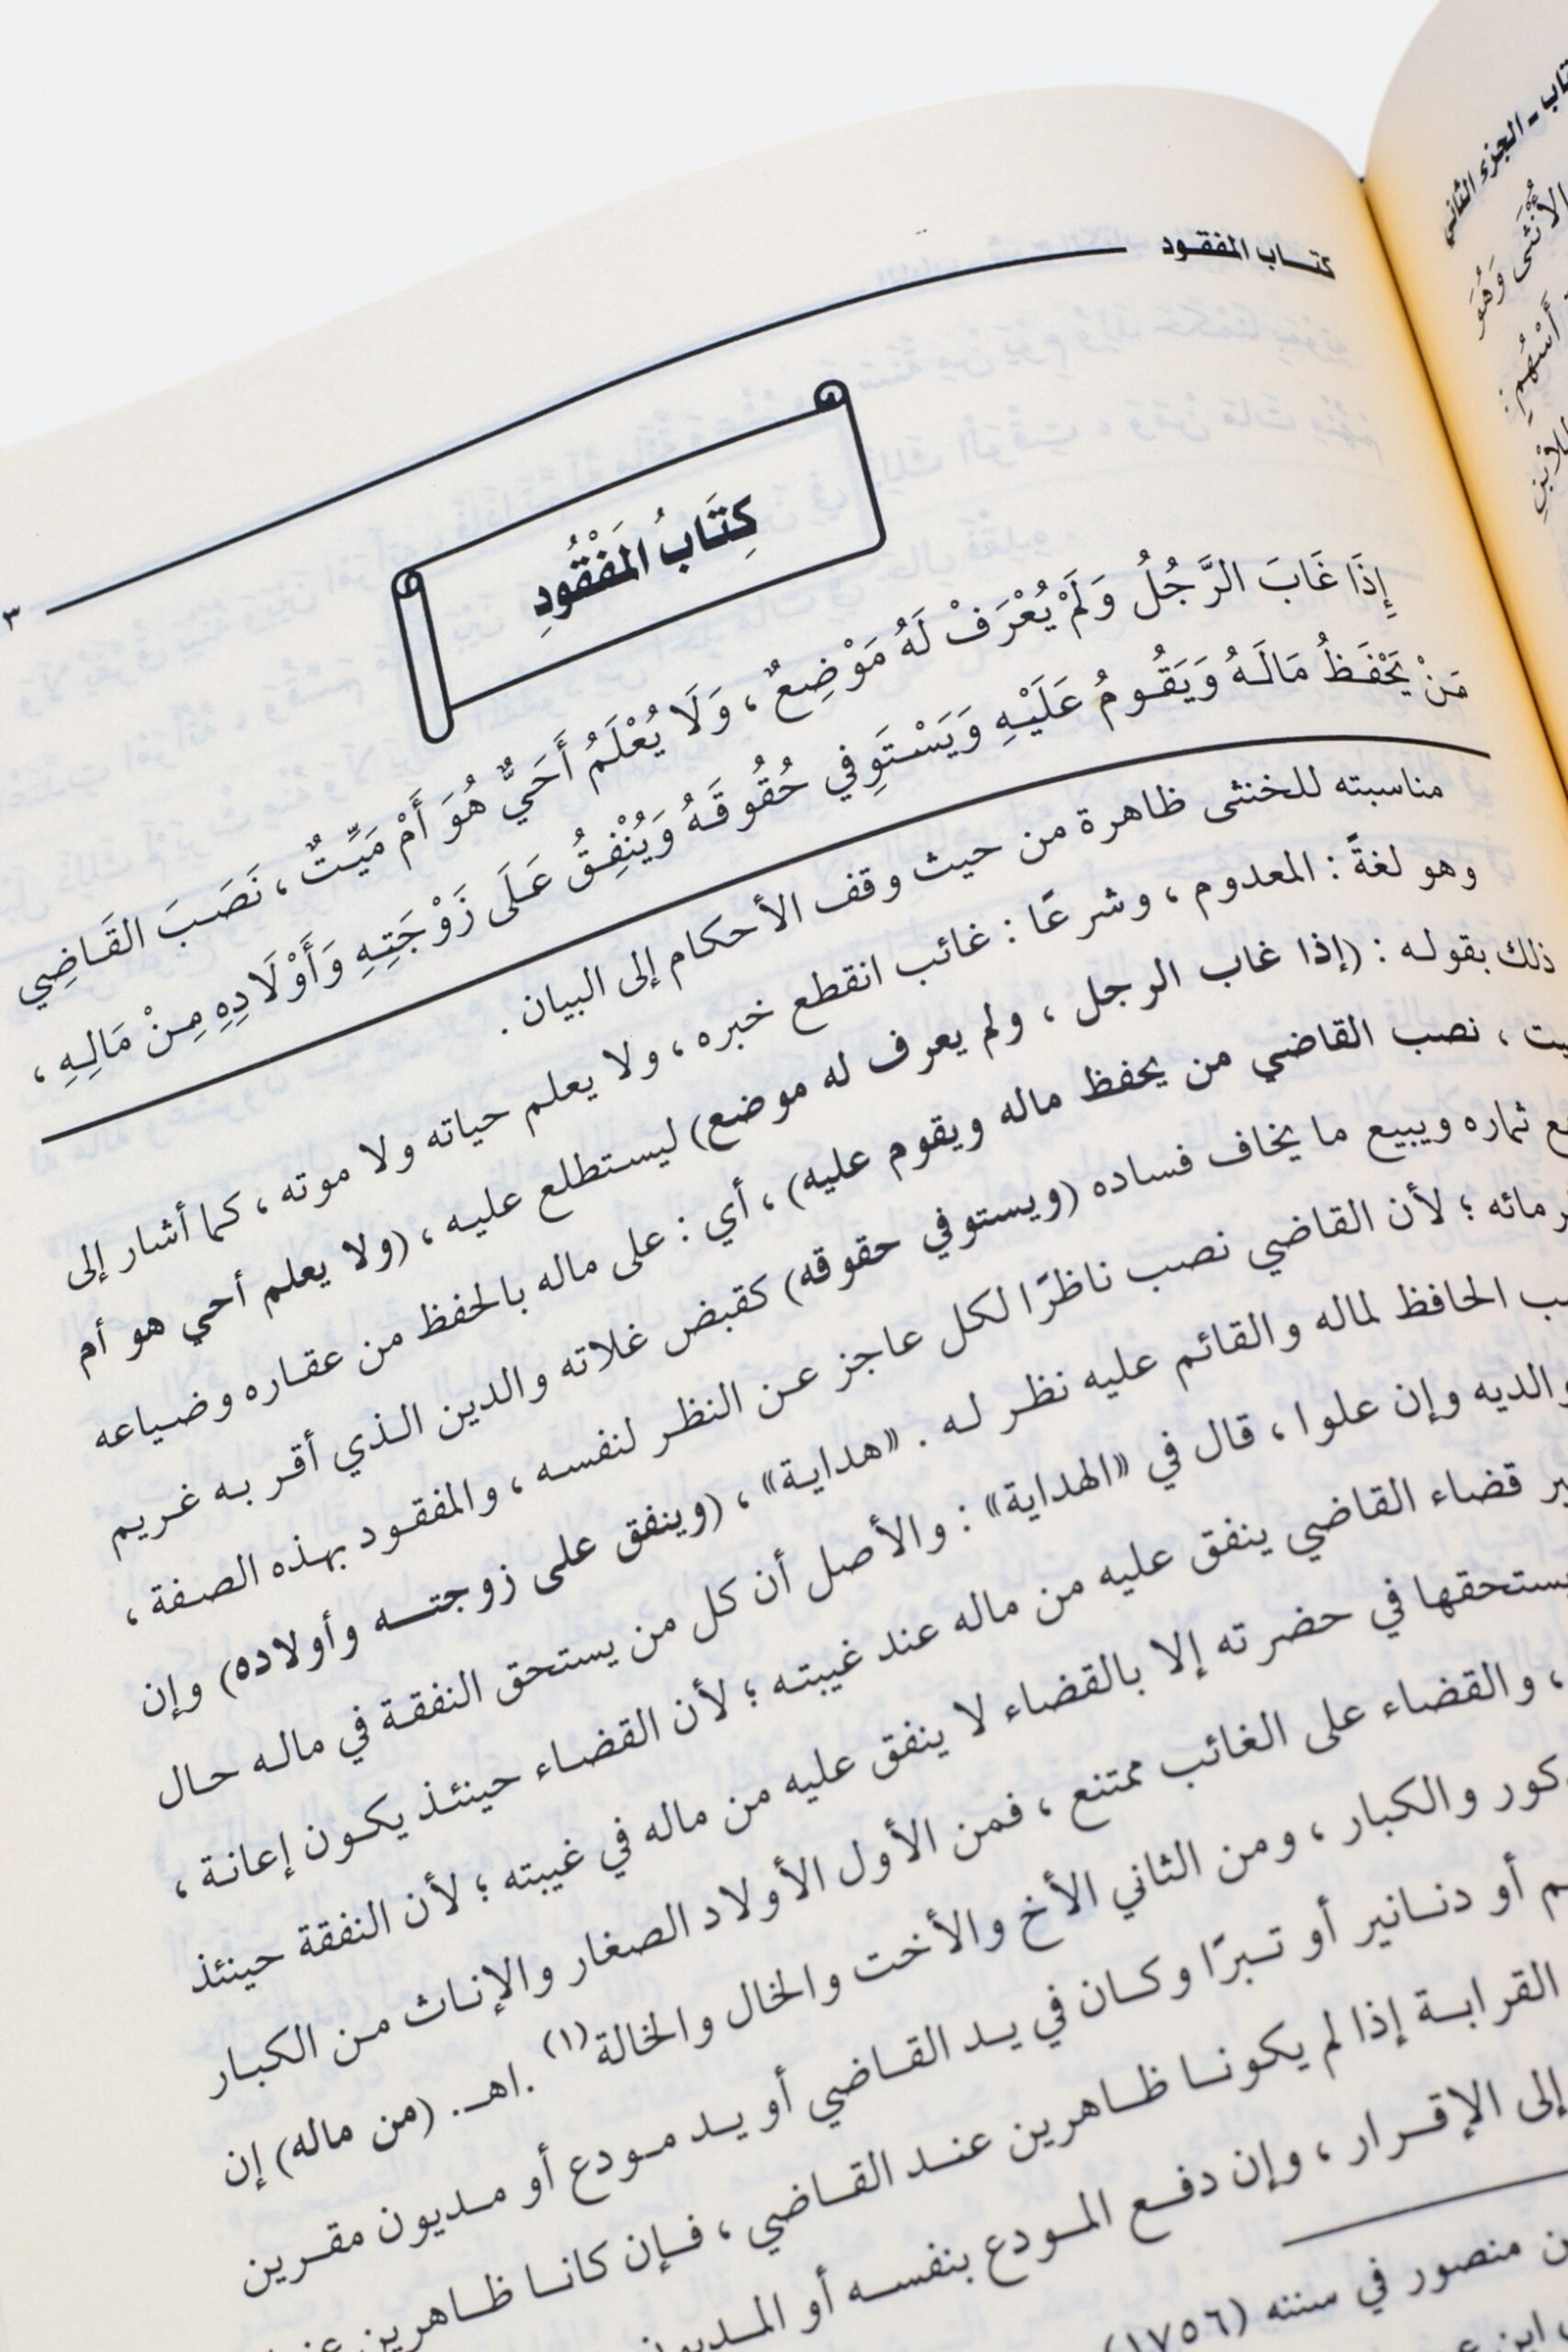 كتـــاب المفقـــود
٣
كِتَابُ المَفْقُودِ
إِذَا غَابَ الرَّجُلُ وَلَمْ يُعْرَفْ لَهُ مَوْضِعٌ ، وَلَا يُعْلَمُ أَحَيٌّ هُوَ أَمْ مَيِّتٌ ، نَصَبَ القَاضِي
مَنْ يَحْفَظُ مَالَهُ وَيَقُومُ عَلَيْهِ وَيَسْتَوِفي حُقُوقَهُ وَيُنْفِقُ عَلَى زَوْجَتِهِ وَأَوْلَادِهِ مِنْ مَالِهِ ،
مناسبته للخنثى ظاهرة من حيث وقف الأحكام إلى البيان .
وهو لغةً : المعدوم ، وشرعًا : غائب انقطع خبره ، ولا يعلم حياته ولا موته ، كما أشار إلى
ذلك بقوله : (إذا غاب الرجل ، ولم يعرف له موضع) ليستطلع عليه ، (ولا يعلم أحي هو أم
نصب القاضي من يحفظ ماله ويقوم عليه) ، أي : على ماله بالحفظ من عقاره وضياعه
ثماره ويبيع ما يخاف فساده (ويستوفي حقوقه) كقبض غلاته والدين الذي أقر به غريم
لأن القاضي نصب ناظرًا لكل عاجز عن النظر لنفسه ، والمفقود بهذه الصفة ،
الحافظ لماله والقائم عليه نظر له . «هداية» ، (وينفق على زوجتـــه وأولاده) وإن
وإن علوا ، قال في «الهداية» : والأصل أن كل من يستحق النفقة في ماله حال
قضاء القاضي ينفق عليه من ماله عند غيبته ؛ لأن القضاء حينئذ يكون إعانة ،
في حضرته إلا بالقضاء لا ينفق عليه من ماله في غيبته ؛ لأن النفقة حينئذ
، والقضاء على الغائب ممتنع ، فمن الأول الأولاد الصغار والإناث من الكبار
والكبار ، ومن الثاني الأخ والأخت والخال والخالة(١) .اهـ. (من ماله) إن
أو دنانير أو تبرًا وكان في يد القاضي أو يد مودع أو مديون مقرين
القرابة إذا لم يكونا ظاهرين عند القاضي ، فإن كانا ظاهرين
إلى الإقرار ، وإن دفع المودع بنفسه أو
منصور في سننه (١٧٥٦)
الجزء الثاني
الأُنْثَى وَهُوَ